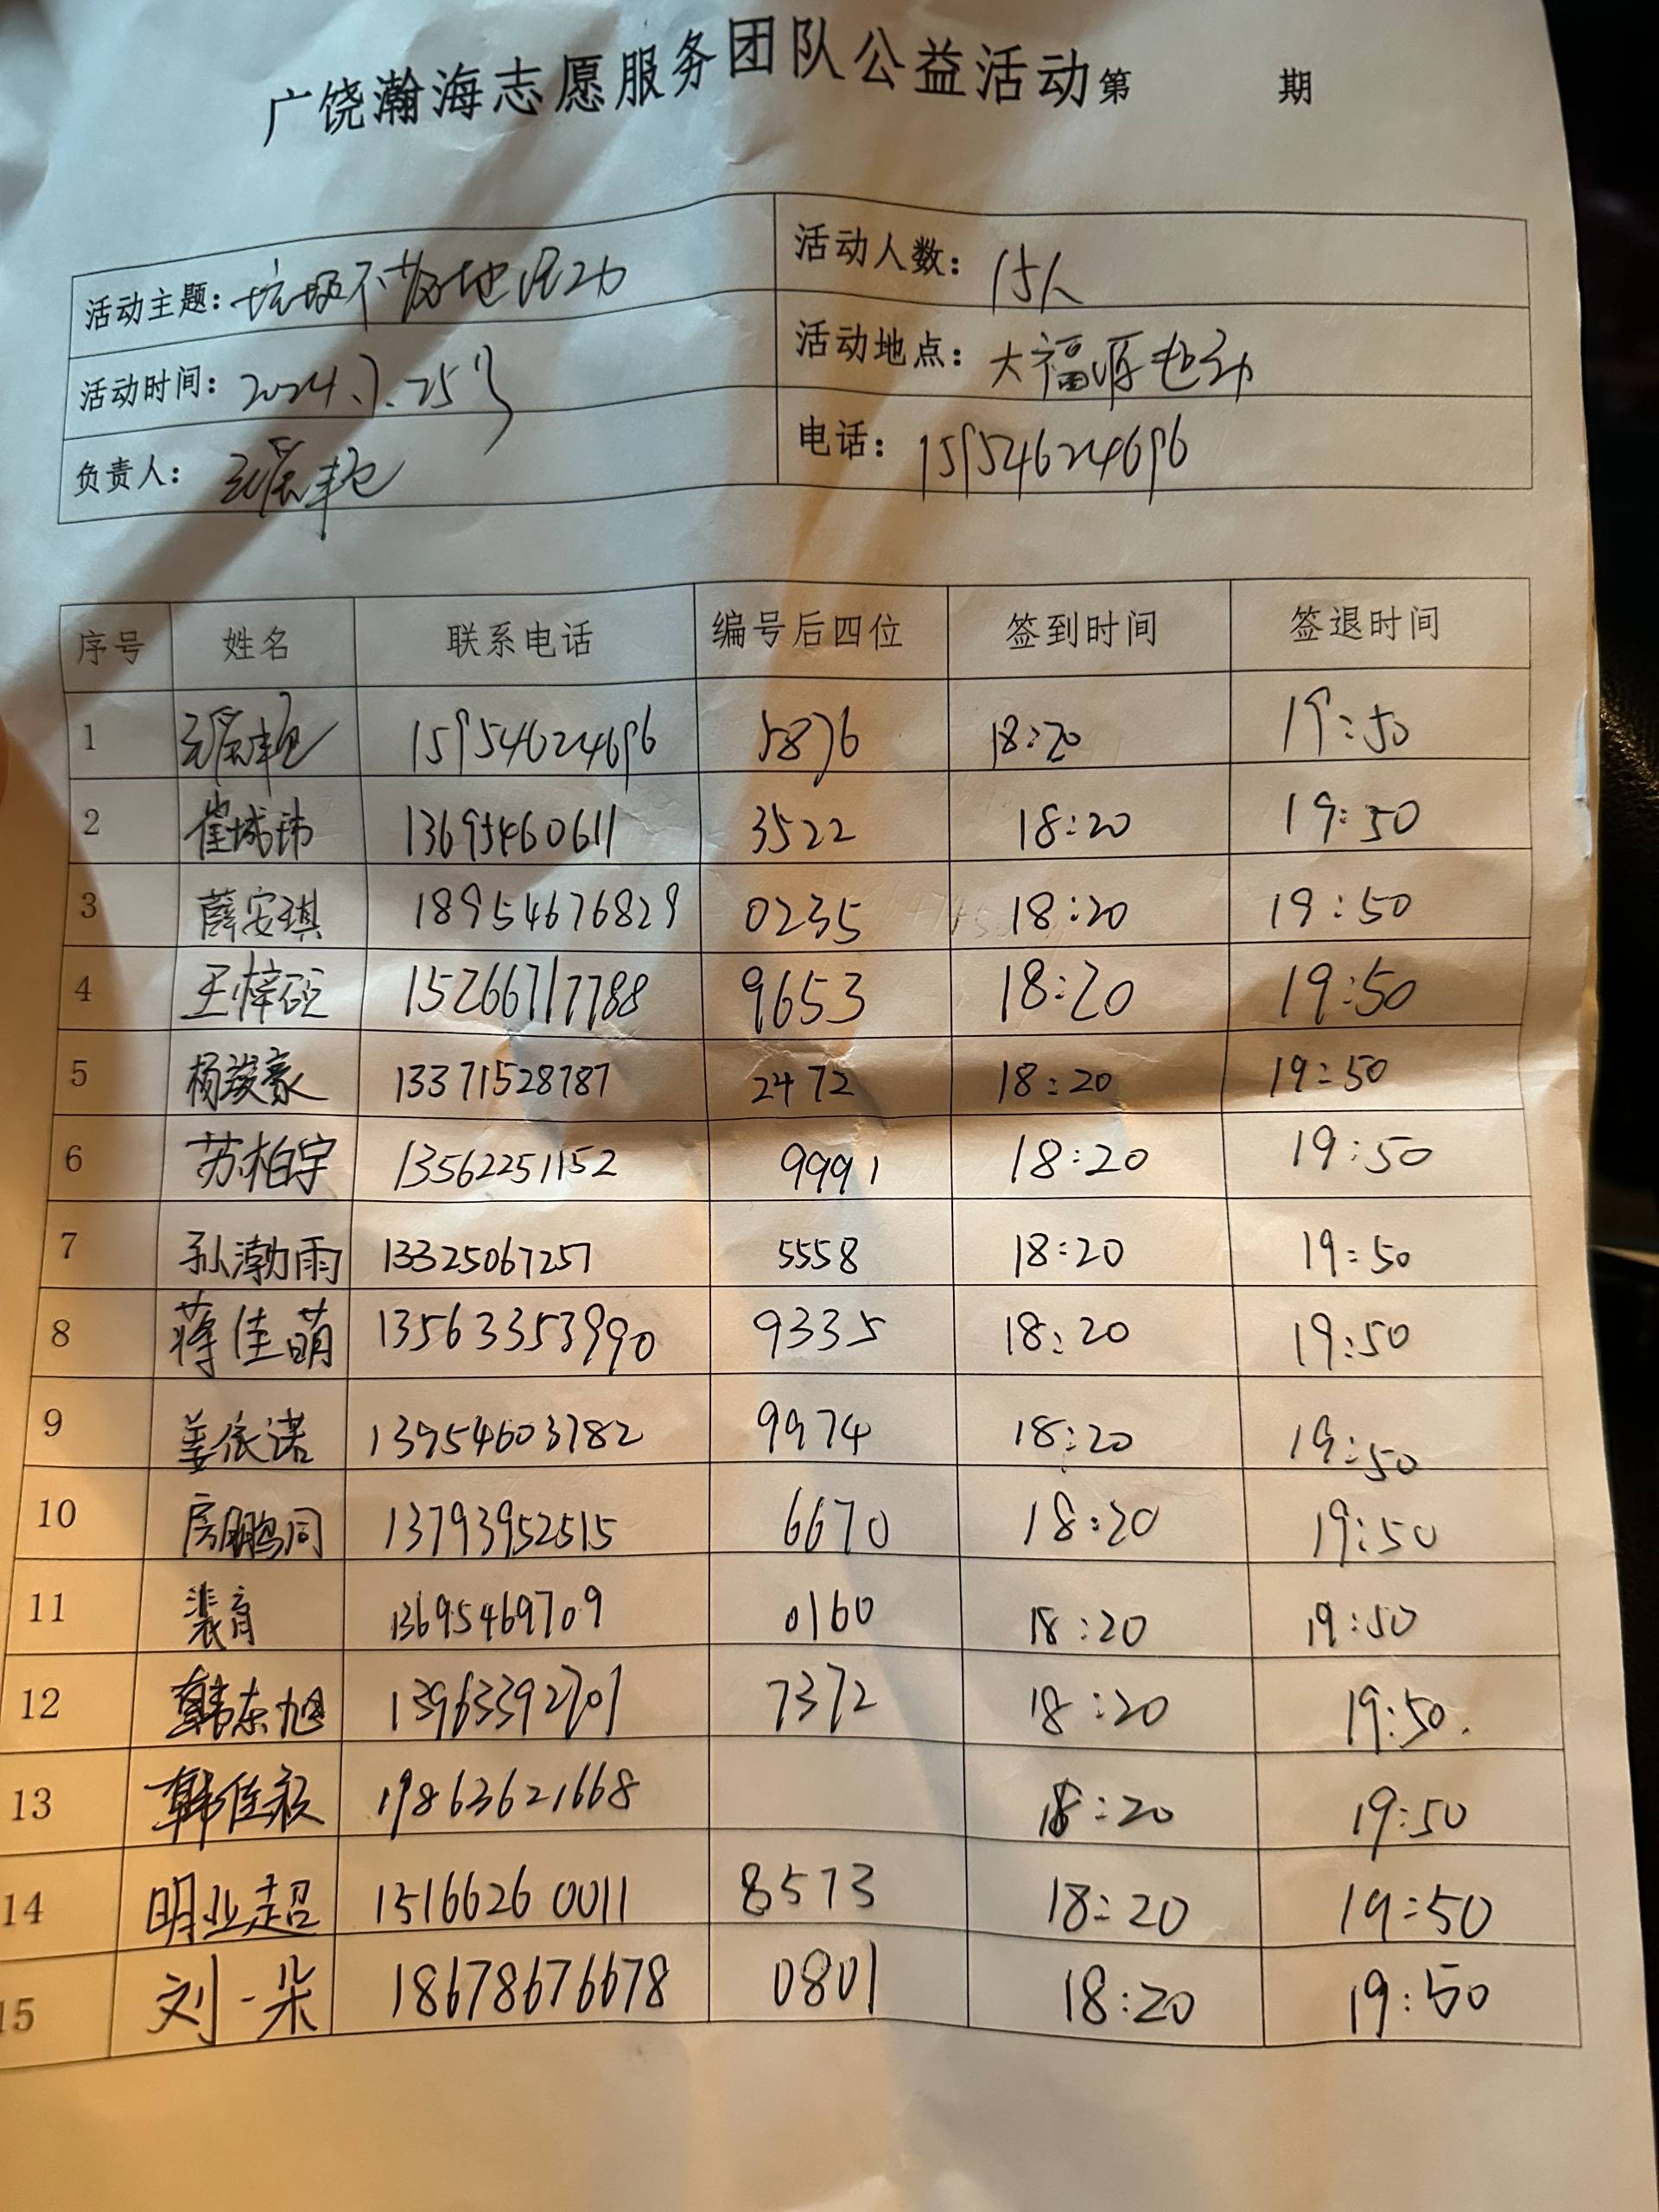 广饶瀚海志愿服务团队公益活动第 期
活动主题：垃圾不落地活动 活动人数：15人
活动时间：2024.7.25号 活动地点：大福源
负责人： 电话：15954624696
序号 姓名 联系电话 编号后四位 签到时间 签退时间
1 15954624696 5876 18:20 19:50
2 崔城玮 13695460611 3522 18:20 19:50
3 薛安琪 18954676829 0235 18:20 19:50
4 王梓硕 15266717788 9653 18:20 19:50
5 杨竣豪 13371528787 2472 18:20 19:50
6 苏柏宇 13562251152 9991 18:20 19:50
7 孙渤雨 13325067257 5558 18:20 19:50
8 蒋佳萌 13563353990 9335 18:20 19:50
9 姜依诺 13954603782 9974 18:20 19:50
10 房鹏同 13793952515 6670 18:20 19:50
11 裴育 13695469709 0160 18:20 19:50
12 韩东旭 13963392701 7372 18:20 19:50.
13 韩佳 19863621668 18:20 19:50
14 明业超 15166260011 8573 18:20 19:50
15 刘一朵 18678676678 0801 18:20 19:50